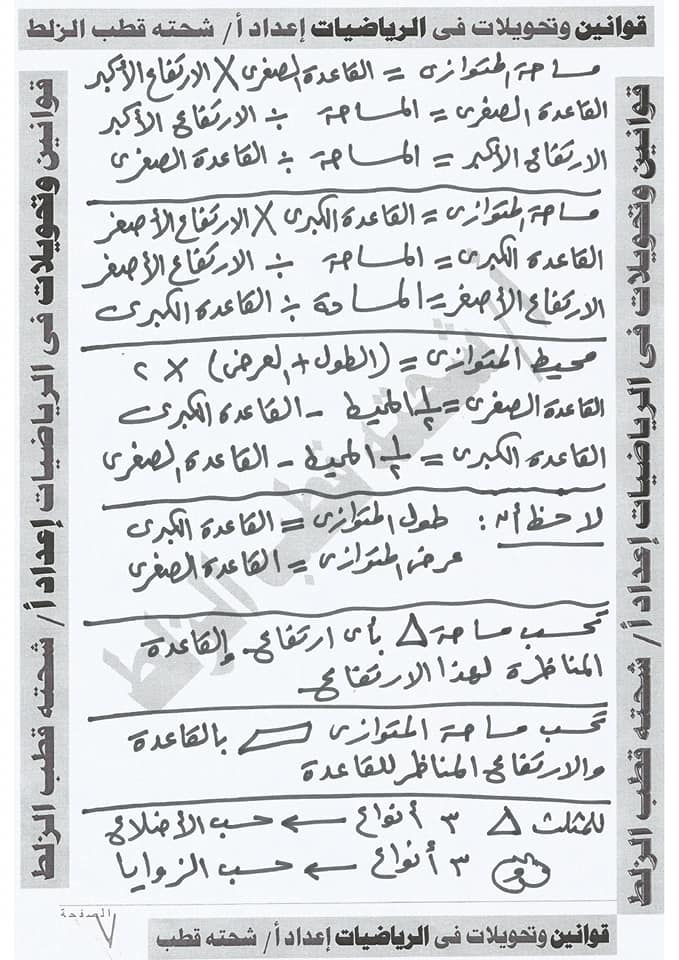 قوانين وتحويلات فى الرياضيات إعداد أ/ شحته قطب الزلط
مساحة المتوازى = القاعدة الصغرى × الارتفاع الأكبر
القاعدة الصغرى = المساحة ÷ الارتفاع الأكبر
الارتفاع الأكبر = المساحة ÷ القاعدة الصغرى
مساحة المتوازى = القاعدة الكبرى × الارتفاع الأصغر
القاعدة الكبرى = المساحة ÷ الارتفاع الأصغر
الارتفاع الأصغر = المساحة ÷ القاعدة الكبرى
محيط المتوازى = (الطول + العرض) × ٢
القاعدة الصغرى = ١/٢ المحيط - القاعدة الكبرى
القاعدة الكبرى = ١/٢ المحيط - القاعدة الصغرى
لاحظ أنه : طول المتوازى = القاعدة الكبرى
عرض المتوازى = القاعدة الصغرى
تحسب مساحة △ بأى ارتفاع والقاعدة
المناظرة لهذا الارتفاع
تحسب مساحة المتوازى ▱ بالقاعدة
والارتفاع المناظر للقاعدة
للمثلث △ ٣ أنواع ← حسب الأضلاع
و ٣ أنواع ← حسب الزوايا
الصفحة ٧
قوانين وتحويلات فى الرياضيات إعداد أ/ شحته قطب
قوانين وتحويلات فى الرياضيات إعداد أ/ شحته قطب الزلط
قوانين وتحويلات فى الرياضيات إعداد أ/ شحته قطب الزلط
أ/ شحته قطب الزلط